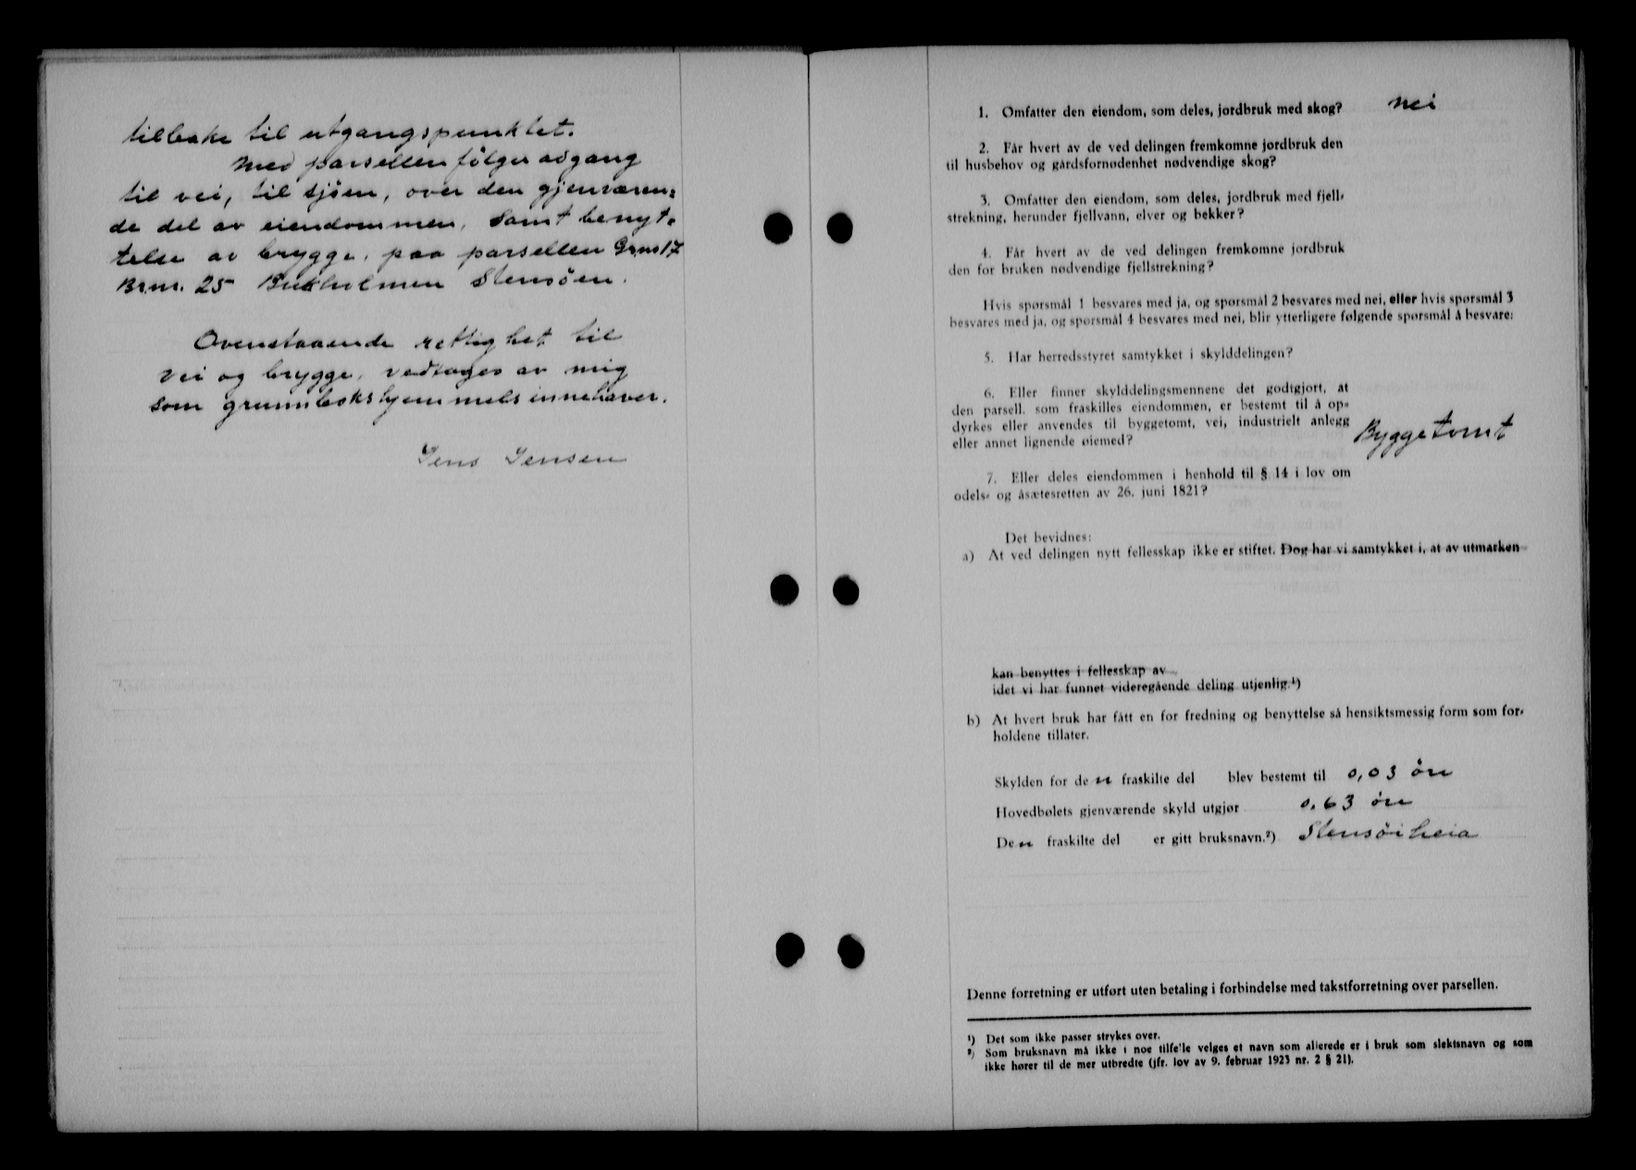 tilbake til utgangspunktet.
Med parsellen følger adgang
til vei, til sjøen, over den gjenværen=
de del av eiendommen, samt benyt=
telse av brygge, paa parsellen Grno 17
Br.nr. 25 Bukholmen Stensøen.
Ovenstaaende rettighet til
vei og brygge, vedtages av mig
som grunnbokshjemmelsinnehaver.
Jens Jensen
1. Omfatter den eiendom, som deles, jordbruk med skog? nei
2. Får hvert av de ved delingen fremkomne jordbruk den
til husbehov og gårdsfornødenhet nødvendige skog?
3. Omfatter den eiendom, som deles, jordbruk med fjell-
strekning, herunder fjellvann, elver og bekker?
4. Får hvert av de ved delingen fremkomne jordbruk
den for bruken nødvendige fjellstrekning?
Hvis spørsmål 1 besvares med ja, og spørsmål 2 besvares med nei, eller hvis spørsmål 3
besvares med ja, og spørsmål 4 besvares med nei, blir ytterligere følgende spørsmål å besvare:
5. Har herredsstyret samtykket i skylddelingen?
6. Eller finner skylddelingsmennene det godtgjort, at
den parsell, som fraskilles eiendommen, er bestemt til å op-
dyrkes eller anvendes til byggetomt, vei, industrielt anlegg
eller annet lignende øiemed? Byggetomt
7. Eller deles eiendommen i henhold til § 14 i lov om
odels- og åsætesretten av 26. juni 1821?
Det bevidnes:
a) At ved delingen nytt fellesskap ikke er stiftet. Dog har vi samtykket i, at av utmarken
kan benyttes i fellesskap av
idet vi har funnet videregående deling utjenlig.¹)
b) At hvert bruk har fått en for fredning og benyttelse så hensiktsmessig form som for-
holdene tillater.
Skylden for den fraskilte del blev bestemt til 0,03 øre
Hovedbølets gjenværende skyld utgjør 0,63 øre
Den fraskilte del er gitt bruksnavn.²) Stensøiheia
Denne forretning er utført uten betaling i forbindelse med takstforretning over parsellen.
¹) Det som ikke passer strykes over.
²) Som bruksnavn må ikke i noe tilfelle velges et navn som allerede er i bruk som slektsnavn og som
ikke hører til de mer utbredte (jfr. lov av 9. februar 1923 nr. 2 § 21).